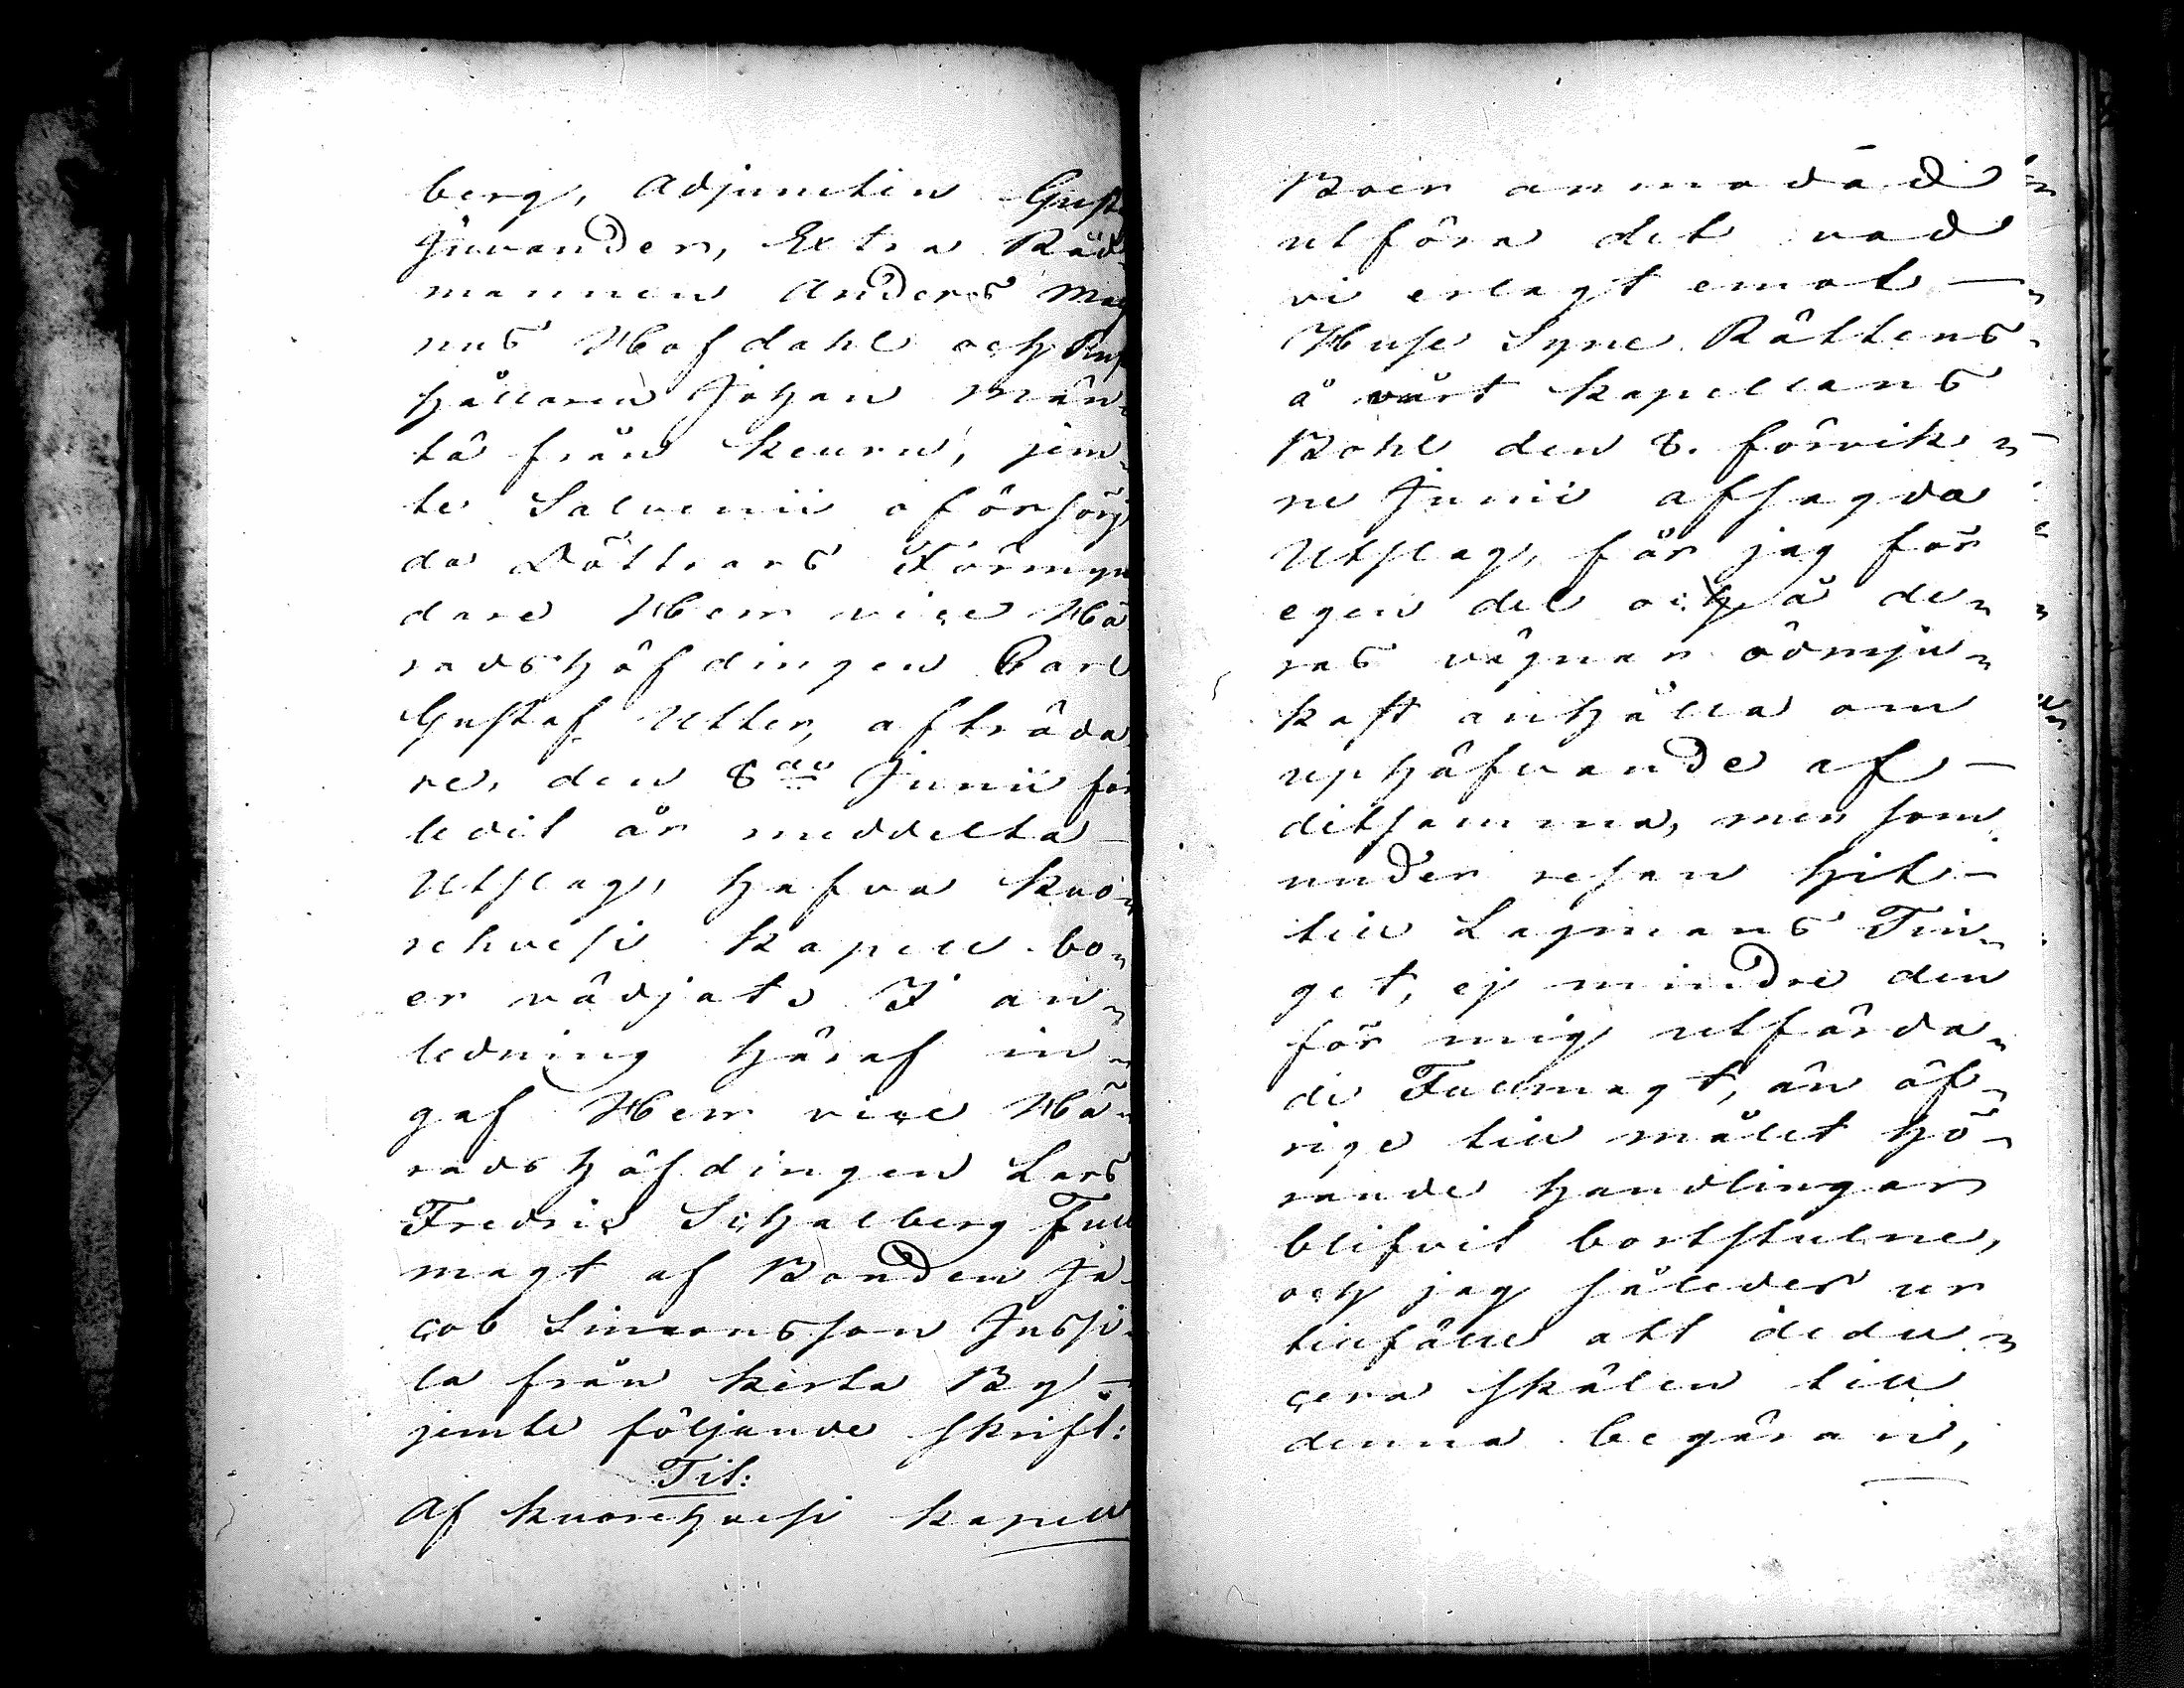 berg, Adjuncten Gust
Juvander, Extra Råd¬
mannen Anders Mag
nus Hofdahl och Rust
hållaren Johan Män¬
tä från Keuru, jem¬
te Salvenii oförsörj
da Döttrars Förmyn
dare Herr vice Hä
radshöfdingen Carl
Gustaf Utter, afträda
re, den 8de Junii för
ledit år meddelta
Utslag, hafva Kuo¬
rehvesi Kapell bo¬
er vädjat. I an¬
ledning häraf in¬
gaf Herr vice Hä¬
radshöfdingen Lars
Fredric Schalberg Full
magt af Bonden Ja¬
cob Simonsson Jussi¬
la från Kerta By
jemte följande skrift:
Tit:
Af Kuorehvesi Kapell
Boer anmodad
utföra det vad
vi erlagt emot
Huse Syne Rättens
å vårt Kapellans
Bohl den 8. förvik¬
ne Junii afsagda
Utslag, får jag för
egen del och å de¬
ras vägnar ödmju¬
kast anhålla om
uphäfvande af
detsamma, men som
under resan hit
till Lagmans Tin¬
get, ej mindre den
för mig utfärda¬
de Fullmagt, än öf¬
rige till målet hö¬
rande handlingar
blifvit bortstulne,
och jag således ur
tillfälle att dedu¬
cera skälen till
denna begäran,